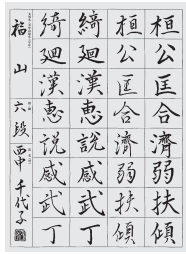 桓公匡合濟弱扶傾
桓公匡合濟弱扶傾
綺廻漢恵說感武丁
綺廻漢恵説感武丁
福山 六段 西中千代子